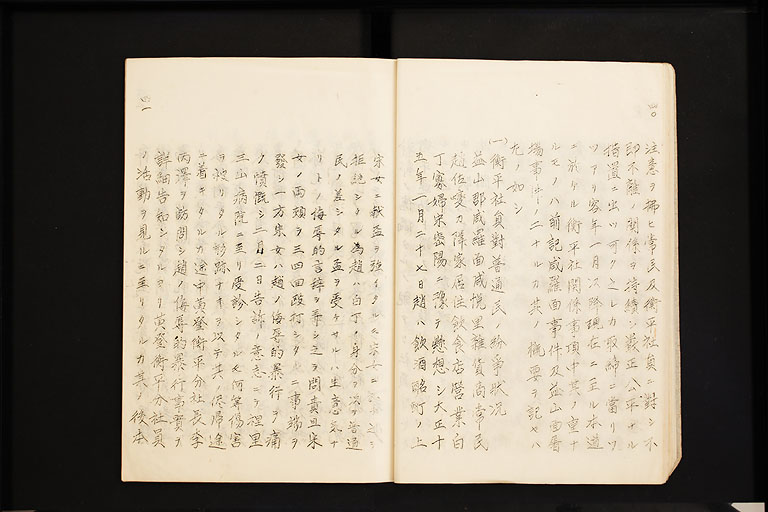 四〇
注意ヲ拂ヒ常民及衡平社員ニ對シ不
即不離ノ關係ヲ持續シ嚴正公平ナル
措置ニ出ツ可ク之レカ取締ニ當リツ
ツアリ客年一月以降現在ニ至ル本道
ニ於ケル衡平社關係事項中其ノ重ナ
ルモノハ前記咸羅面事件及益山面屠
場事件ノ二ナルカ其ノ概要ヲ記セハ
左ノ如シ
(一)衡平社員對普通民ノ紛爭狀況
益山郡咸羅面咸悅里雜貨商常民
趙 ハ隣家居住飲食店營業白
丁寡婦宋 ニ豫テ懸想シ大正十
五年一月二十七日趙ハ飲酒酩酊ノ上
四一
宋女ニ献盃ヲ強イタルモ宋女ニ 之レ
拒絶シタル為趙ハ白丁ノ身分ヲ以テ普通
民ノ差シタル盃ヲ受ケサルハ生意気ナ
リトノ侮辱的言辞ヲ弄シ之ヲ問責且宋
女ノ両頬ヲ三四回殴打シタル ニ事端ヲ
發シ一方宋女ハ趙ノ侮辱的暴行ヲ痛
ク憤慨シ二月二日告訴ノ意志ニテ裡里
三山病院ニ至リ受診シタルモ何等傷害
ヲ被リタル形跡ナキヲ以テ其ノ儘帰途
ニ着キタルカ途中黄登衡平分社長李
丙澤ヲ訪問シ趙ノ侮辱的暴行事實ヲ
詳細告知シタルヨリ黄登衡平分社員
ノ活動ヲ見ルニ至リタルカ其ノ後本